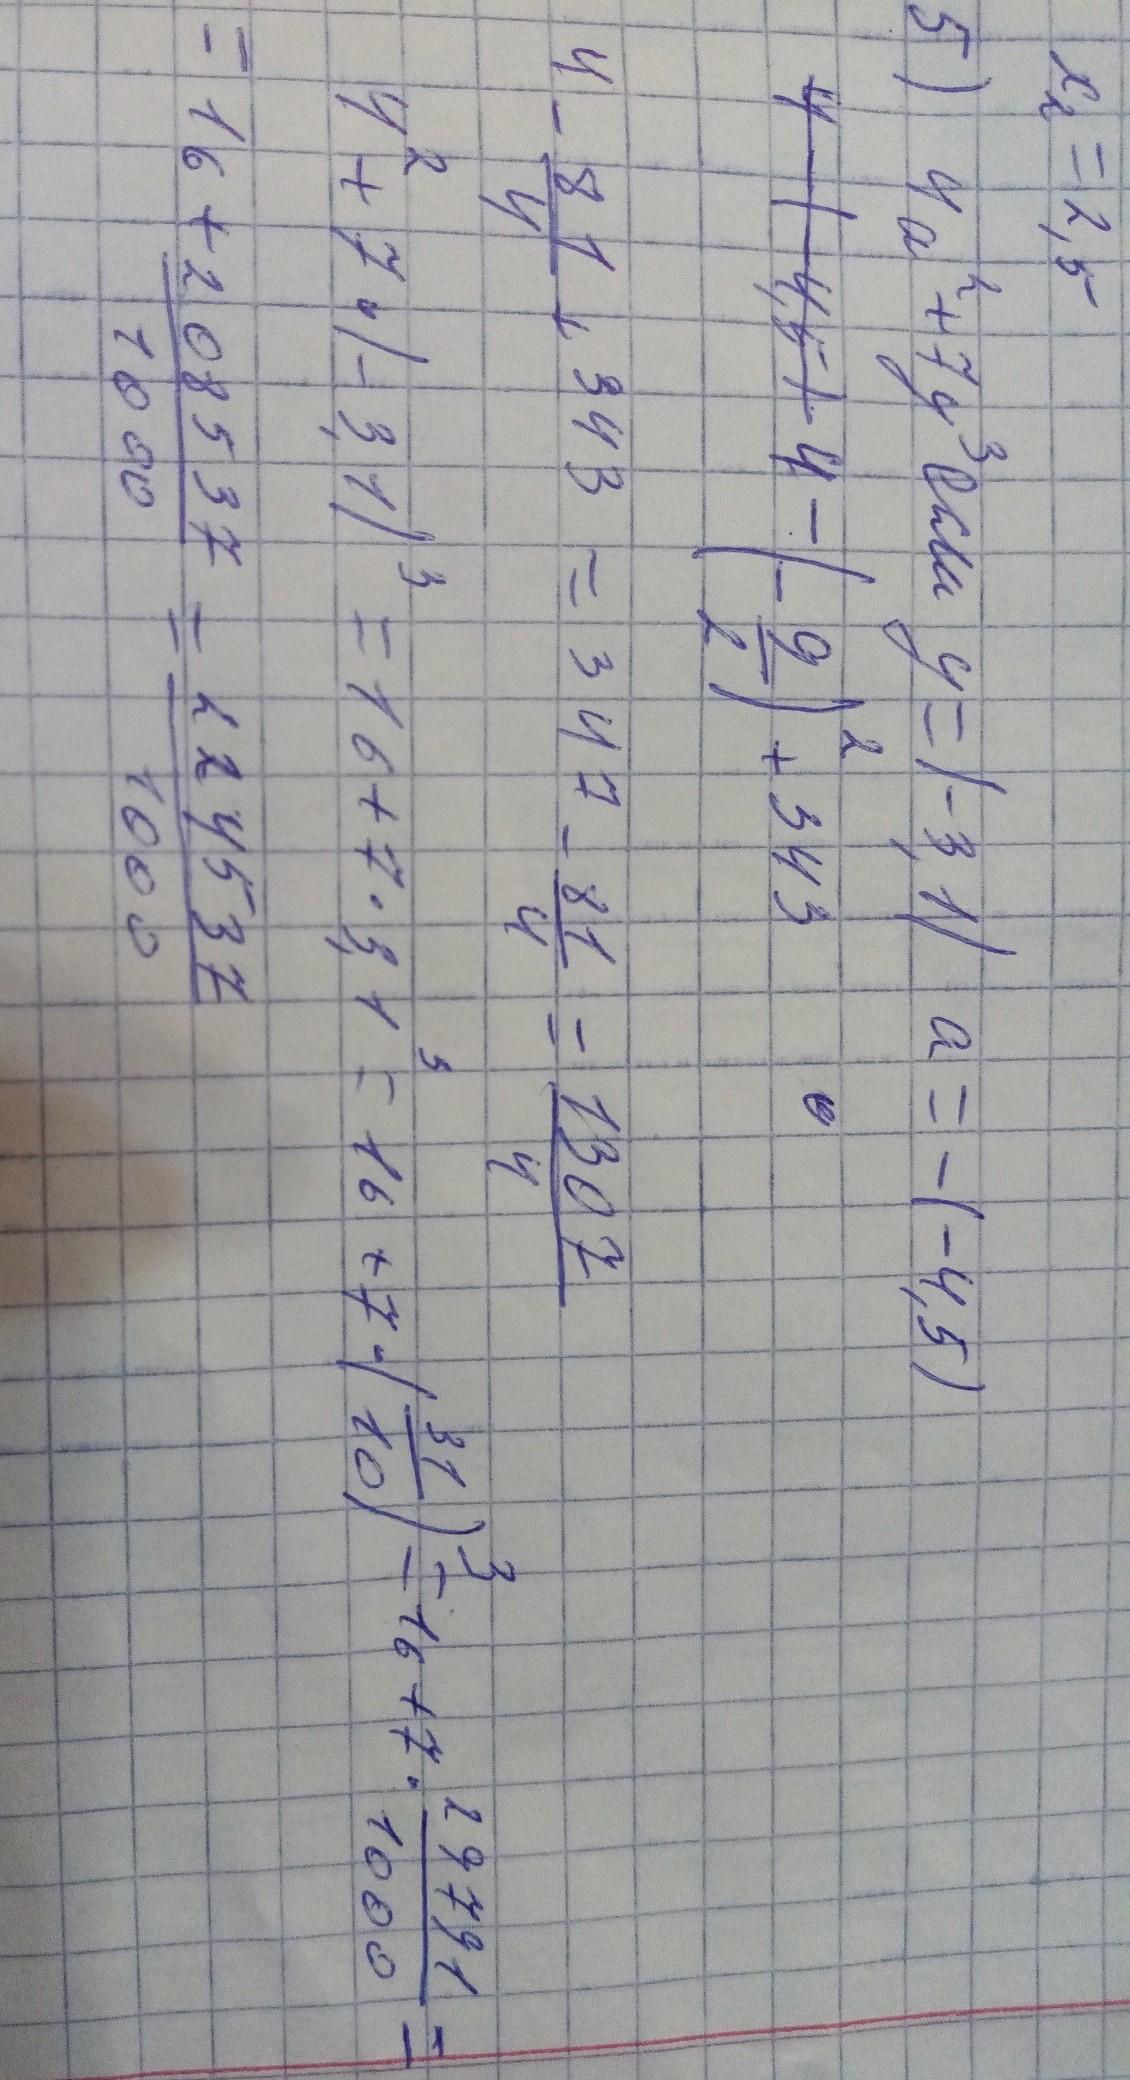 x₂ = 2,5
5) 4a² + 7y³ если y = (-3,1) a = -(-4,5)
4 - (-4,5) + 4 - (-9/2)² + 343
4 - 81/4 + 343 = 347 - 81/4 = 1307/4
4² + 7·(-3,1)³ = 16 + 7·3,1³ = 16 + 7·(31/10)³ = 16 + 7·29791/1000 =
= 16 + 208537/1000 = 224537/1000